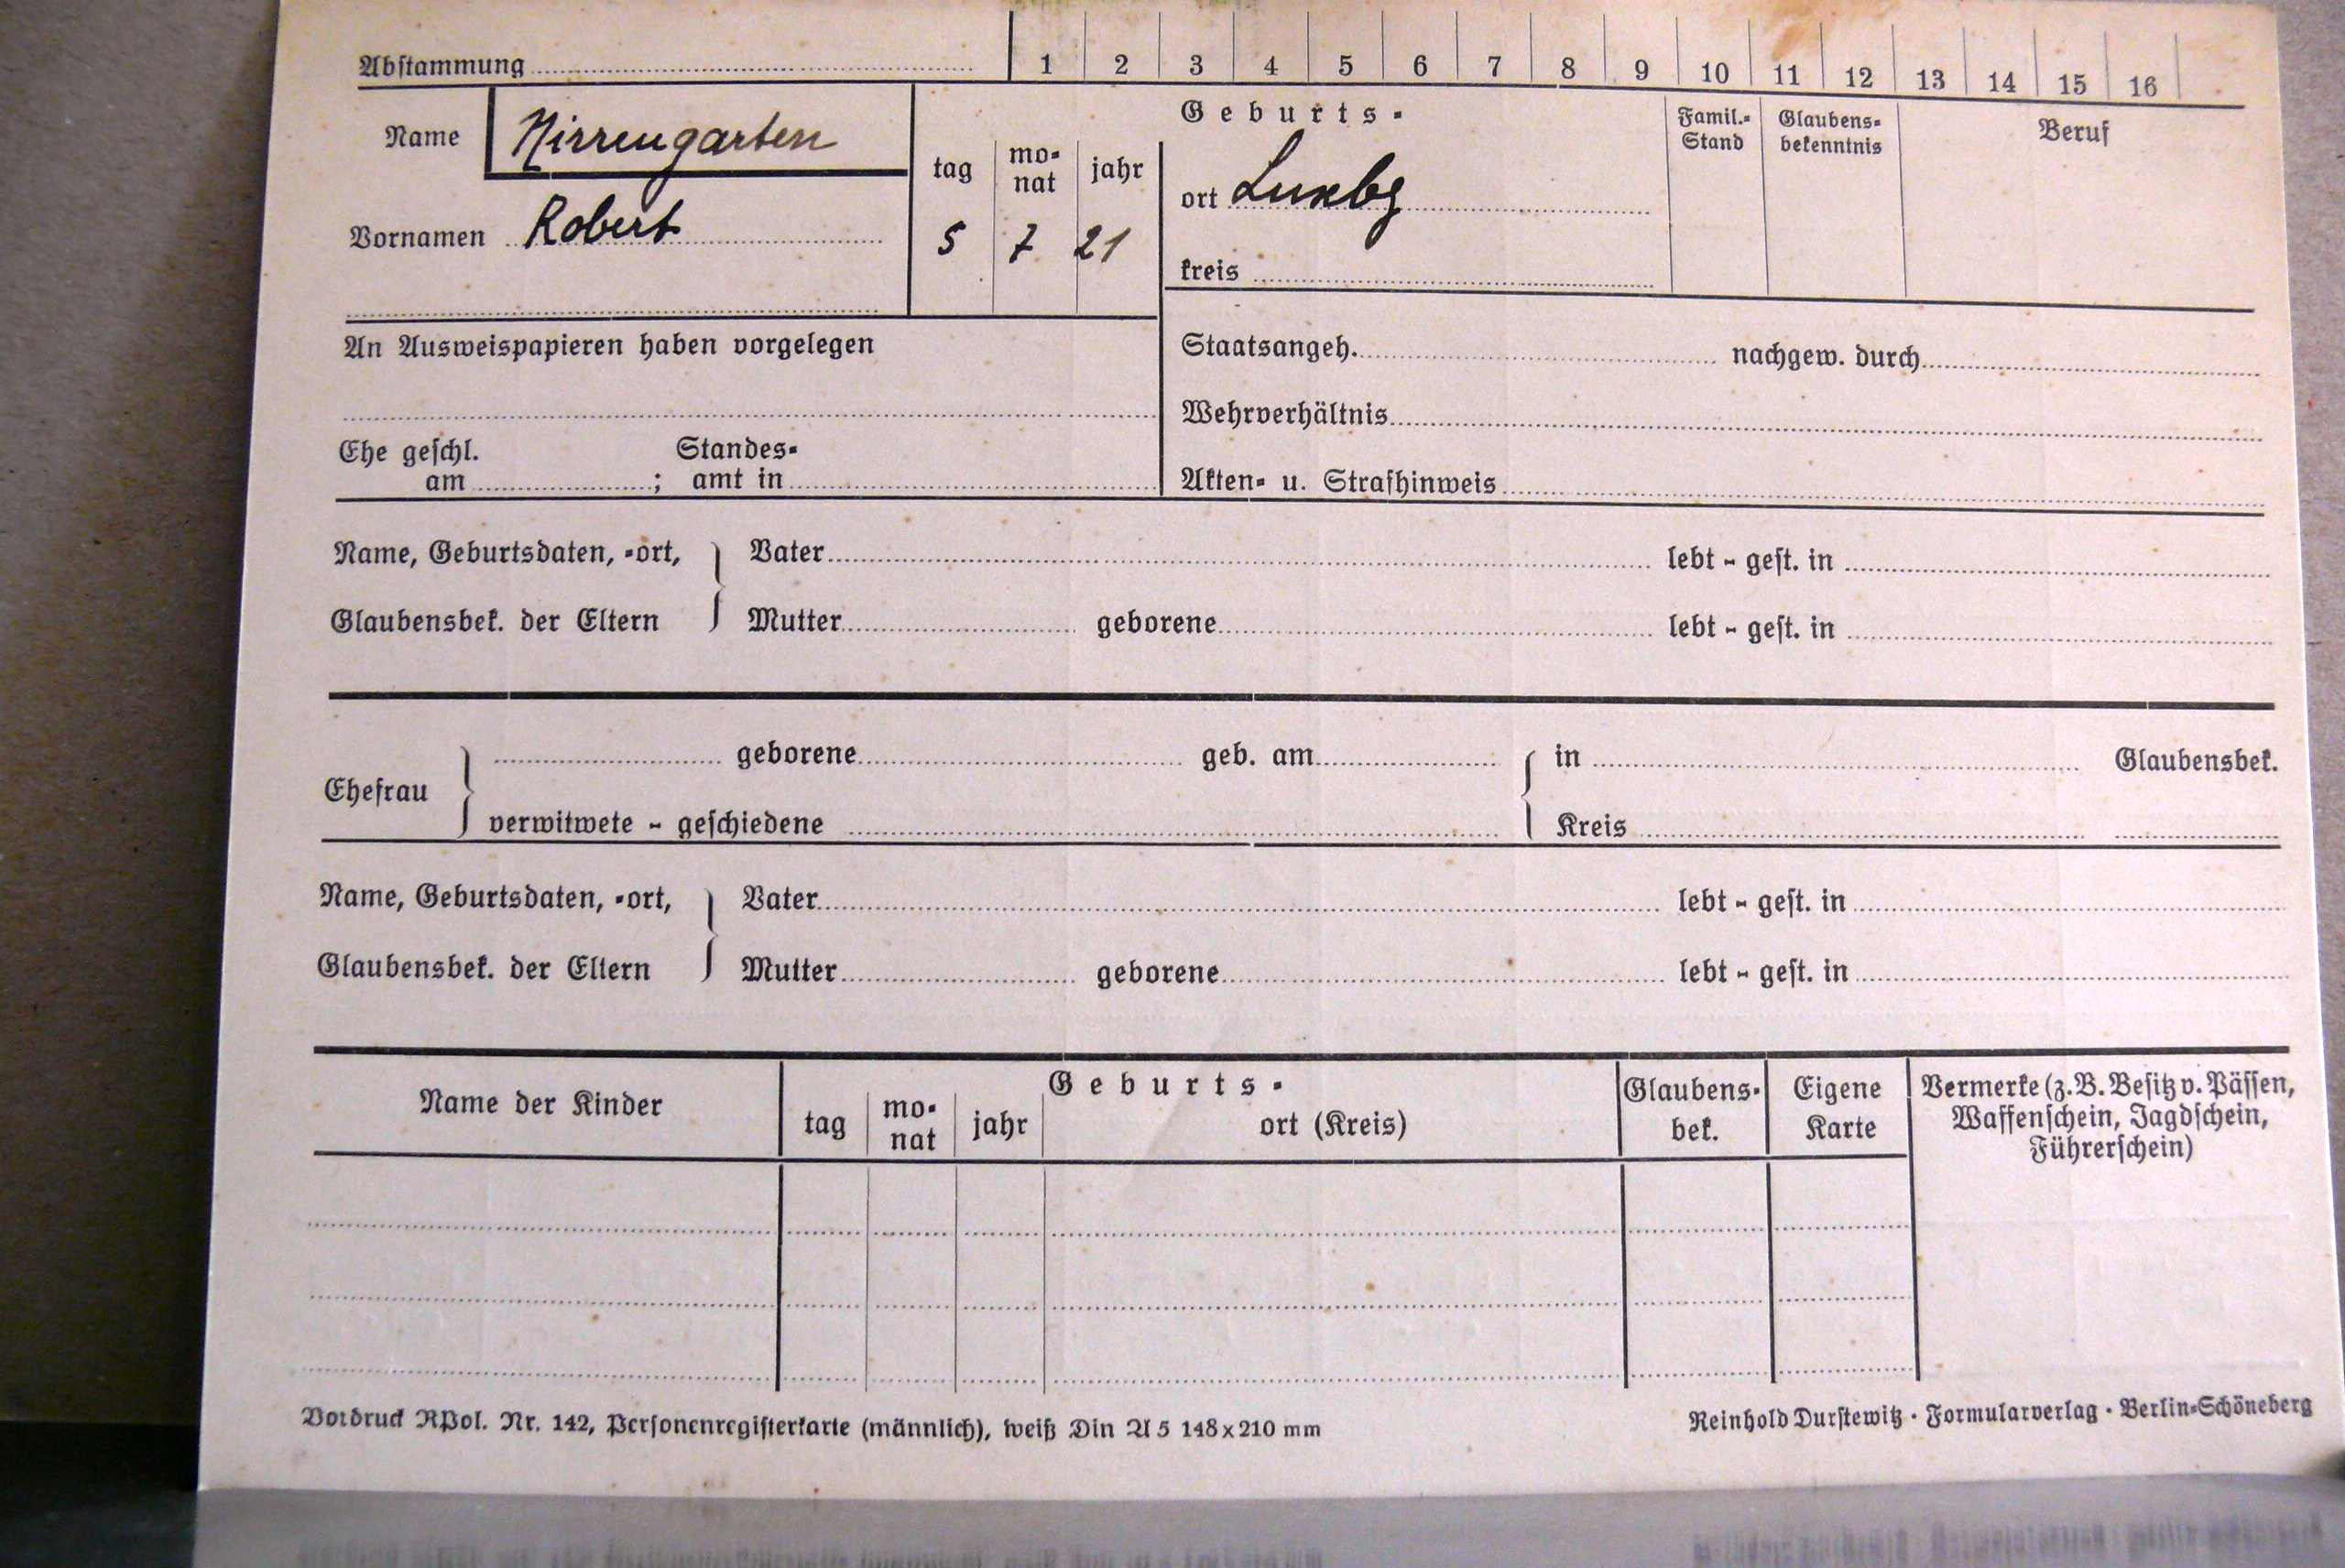 Abstammung 1 2 3 4 5 6 7 8 9 10 11 12 13 14 15 16
Name Nirrengarten
Vornamen Robert
Geburts-
tag monat jahr
5 7 21
ort Luxbg
kreis
Famil.-Stand
Glaubensbekenntnis
Beruf
An Ausweispapieren haben vorgelegen
Staatsangeh. nachgew. durch
Wehrverhältnis
Ehe geschl. am ; Standesamt in
Akten- u. Strafhinweis
Name, Geburtsdaten, -ort, Vater lebt - gest. in
Glaubensbek. der Eltern Mutter geborene lebt - gest. in
Ehefrau geborene geb. am in Glaubensbek.
verwitwete - geschiedene Kreis
Name, Geburtsdaten, -ort, Vater lebt - gest. in
Glaubensbek. der Eltern Mutter geborene lebt - gest. in
Name der Kinder
Geburts-
tag monat jahr ort (Kreis)
Glaubensbek.
Eigene Karte
Vermerke (z. B. Besitz v. Pässen,
Waffenschein, Jagdschein,
Führerschein)
Vordruck RPol. Nr. 142, Personenregisterkarte (männlich), weiß Din A 5 148x210 mm
Reinhold Durstewitz · Formularverlag · Berlin-Schöneberg